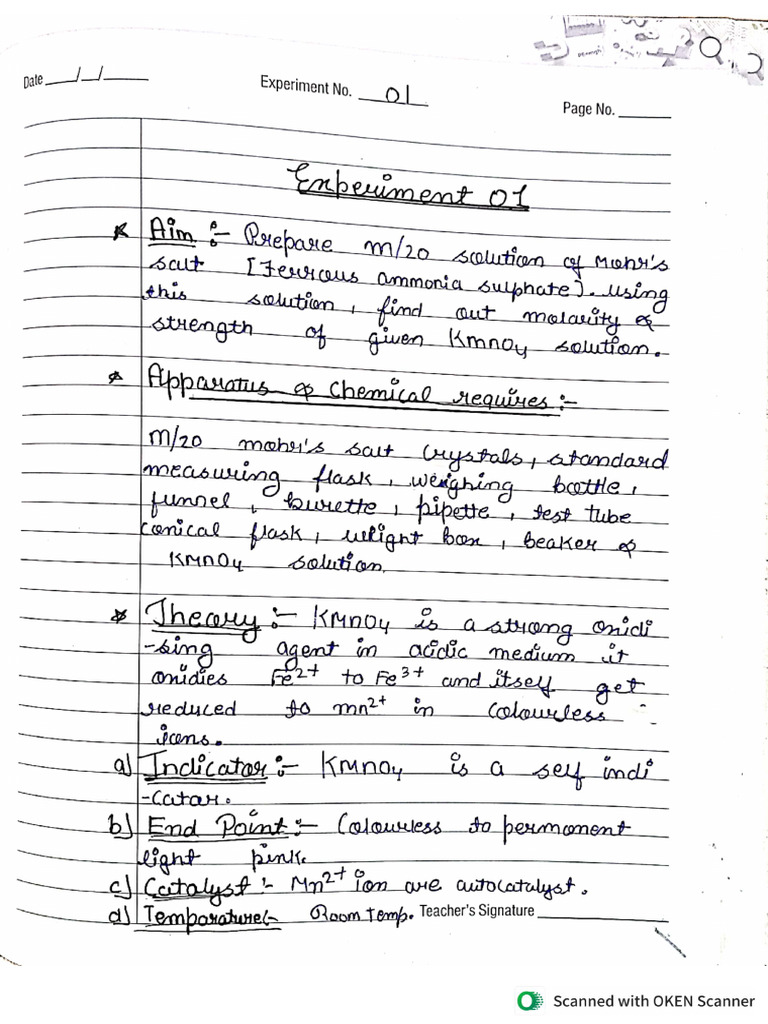 Date __/__/____
Experiment No. 01
Page No. ____
Experiment 01
* Aim :- Prepare M/20 solution of Mohr's
salt [Ferrous ammonia sulphate]. Using
this solution, find out molarity &
strength of given KMnO4 solution.
* Apparatus & Chemical requires :-
M/20 mohr's salt crystals, standard
measuring flask, weighing bottle,
funnel, burette, pipette, test tube
conical flask, weight box, beaker &
KMnO4 solution.
* Theory :- KMnO4 is a strong oxidi
-sing agent in acidic medium it
oxidies Fe2+ to Fe3+ and itself get
reduced to mn2+ in colourless
ions.
a) Indicator :- KMnO4 is a self indi
-cator.
b) End Point :- Colourless to permanent
light pink.
c) Catalyst :- Mn2+ ion are autocatalyst.
d) Temparature :- Room Temp.
Teacher's Signature ____
Scanned with OKEN Scanner